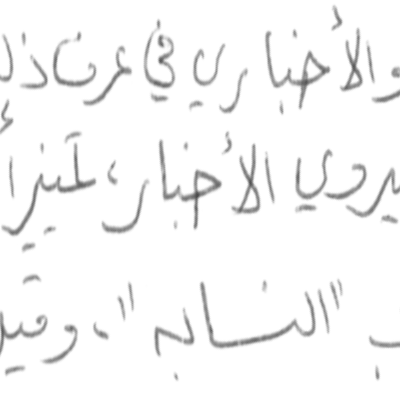 والأخباري في عرف ذلك
يروي الأخبار، تمييزاً
"النسابة"، وقيل